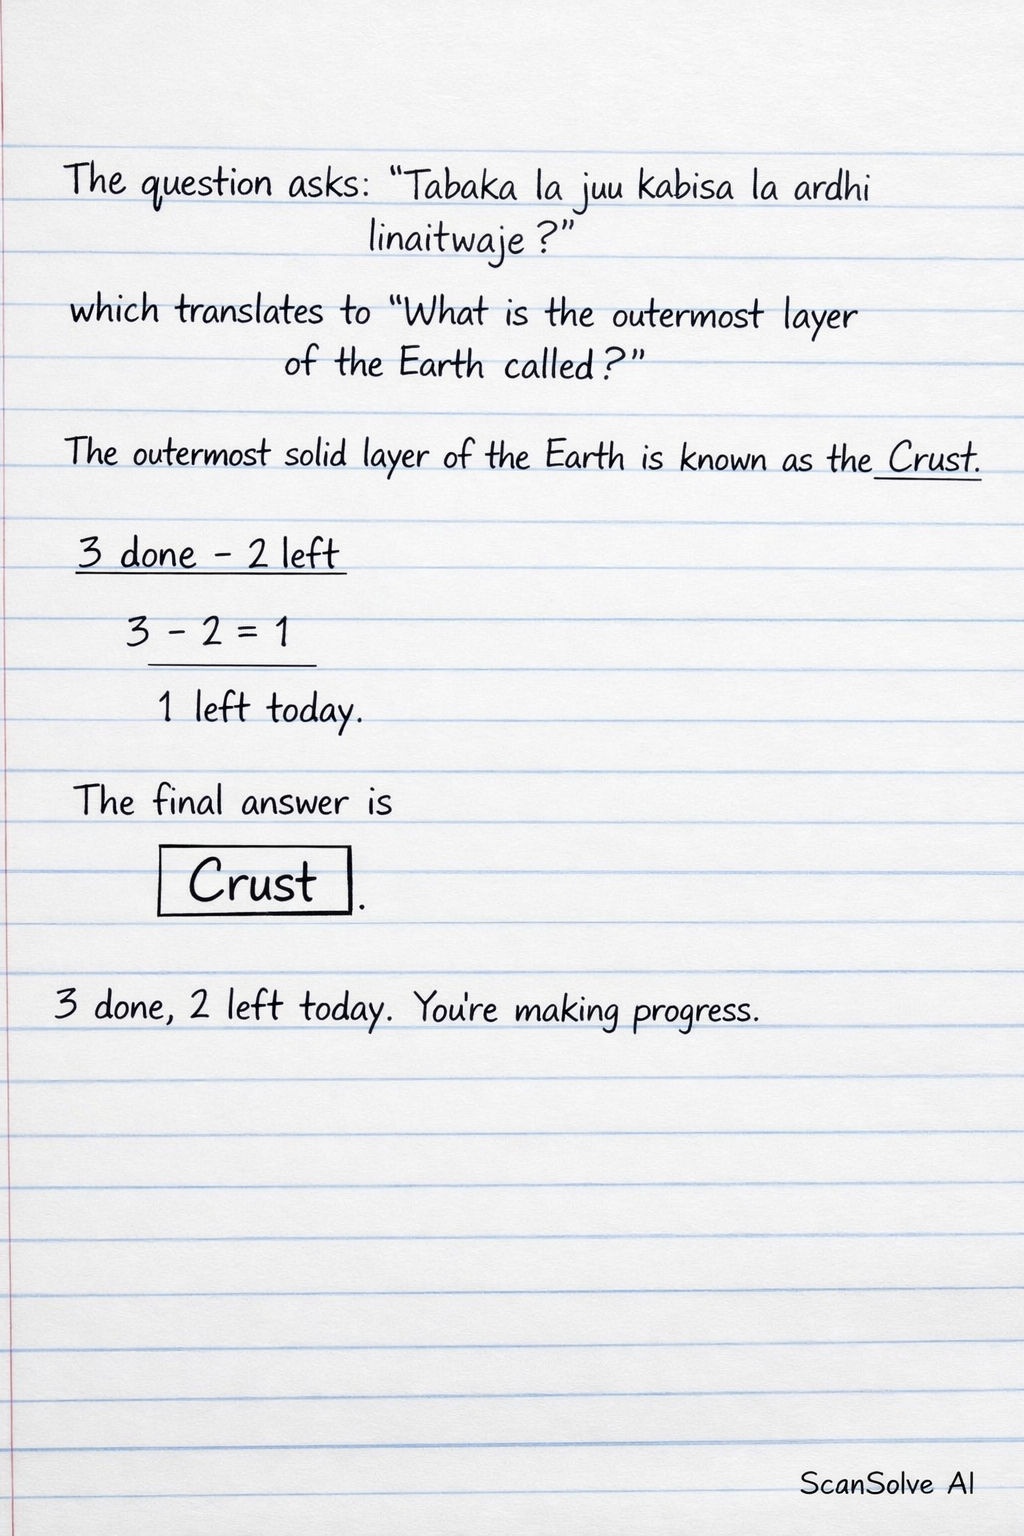 The question asks: "Tabaka la juu kabisa la ardhi
linaitwaje ?"
which translates to "What is the outermost layer
of the Earth called ?"
The outermost solid layer of the Earth is known as the Crust.
3 done - 2 left
3 - 2 = 1
1 left today.
The final answer is
Crust.
3 done, 2 left today. You're making progress.
ScanSolve AI